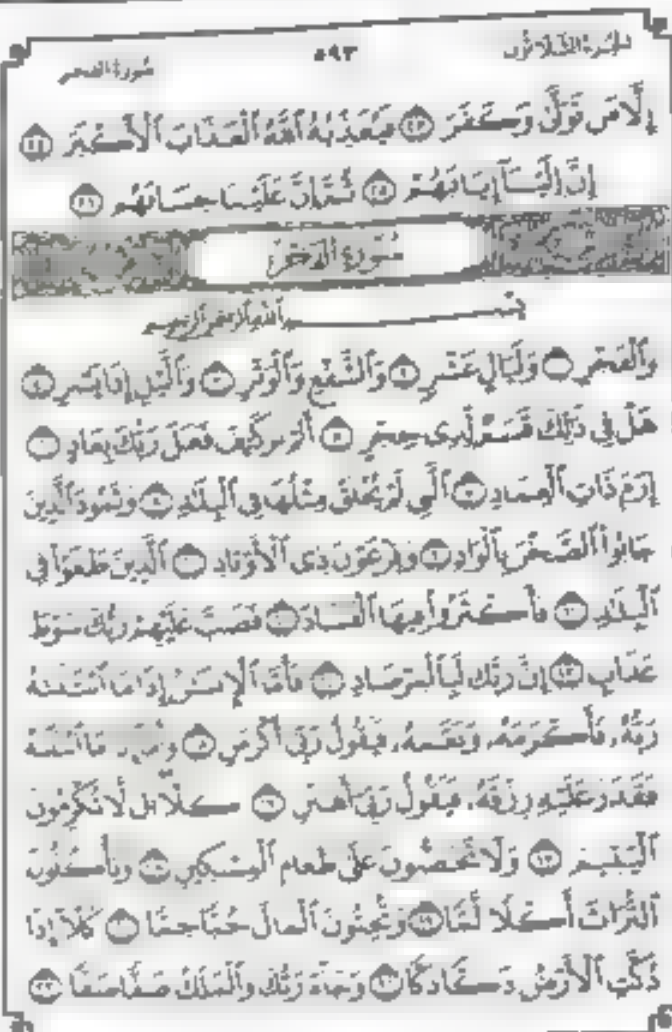 الجزء الثلاثون ٥٩٣ سورة الفجر
إِلَّا مَن تَوَلَّىٰ وَكَفَرَ ٢٣ فَيُعَذِّبُهُ ٱللَّهُ ٱلْعَذَابَ ٱلْأَكْبَرَ ٢٤
إِنَّ إِلَيْنَآ إِيَابَهُمْ ٢٥ ثُمَّ إِنَّ عَلَيْنَا حِسَابَهُم ٢٦
سُورَةُ الفَجْرِ
بِسْمِ ٱللَّهِ ٱلرَّحْمَٰنِ ٱلرَّحِيمِ
وَٱلْفَجْرِ ١ وَلَيَالٍ عَشْرٍ ٢ وَٱلشَّفْعِ وَٱلْوَتْرِ ٣ وَٱلَّيْلِ إِذَا يَسْرِ ٤
هَلْ فِى ذَٰلِكَ قَسَمٌ لِّذِى حِجْرٍ ٥ أَلَمْ تَرَ كَيْفَ فَعَلَ رَبُّكَ بِعَادٍ ٦
إِرَمَ ذَاتِ ٱلْعِمَادِ ٧ ٱلَّتِى لَمْ يُخْلَقْ مِثْلُهَا فِى ٱلْبِلَٰدِ ٨ وَثَمُودَ ٱلَّذِينَ
جَابُوا۟ ٱلصَّخْرَ بِٱلْوَادِ ٩ وَفِرْعَوْنَ ذِى ٱلْأَوْتَادِ ١٠ ٱلَّذِينَ طَغَوْا۟ فِى
ٱلْبِلَٰدِ ١١ فَأَكْثَرُوا۟ فِيهَا ٱلْفَسَادَ ١٢ فَصَبَّ عَلَيْهِمْ رَبُّكَ سَوْطَ
عَذَابٍ ١٣ إِنَّ رَبَّكَ لَبِٱلْمِرْصَادِ ١٤ فَأَمَّا ٱلْإِنسَٰنُ إِذَا مَا ٱبْتَلَىٰهُ
رَبُّهُۥ فَأَكْرَمَهُۥ وَنَعَّمَهُۥ فَيَقُولُ رَبِّىٓ أَكْرَمَنِ ١٥ وَأَمَّآ إِذَا مَا ٱبْتَلَىٰهُ
فَقَدَرَ عَلَيْهِ رِزْقَهُۥ فَيَقُولُ رَبِّىٓ أَهَٰنَنِ ١٦ كَلَّا بَل لَّا تُكْرِمُونَ
ٱلْيَتِيمَ ١٧ وَلَا تَحَٰٓضُّونَ عَلَىٰ طَعَامِ ٱلْمِسْكِينِ ١٨ وَتَأْكُلُونَ
ٱلتُّرَاثَ أَكْلًا لَّمًّا ١٩ وَتُحِبُّونَ ٱلْمَالَ حُبًّا جَمًّا ٢٠ كَلَّآ إِذَا
دُكَّتِ ٱلْأَرْضُ دَكًّا دَكًّا ٢١ وَجَآءَ رَبُّكَ وَٱلْمَلَكُ صَفًّا صَفًّا ٢٢